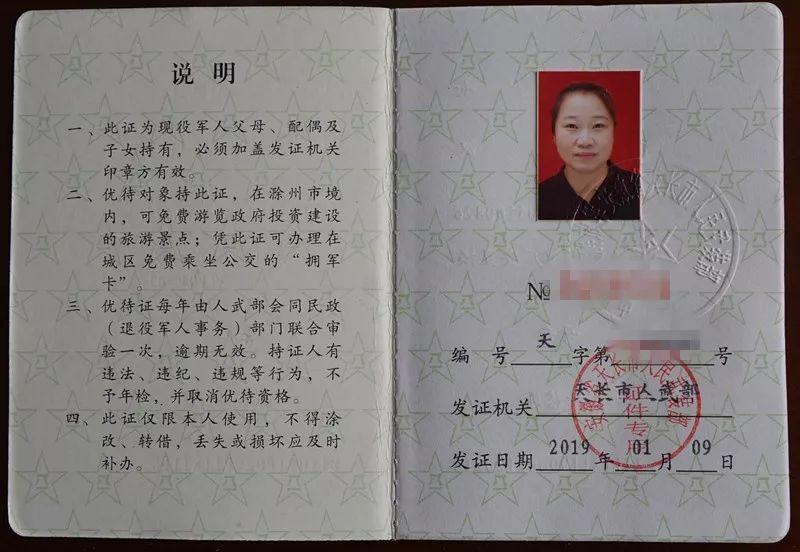 说明
一、此证为现役军人父母、配偶及
子女持有，必须加盖发证机关
印章方有效。
二、优待对象持此证，在滁州市境
内，可免费游览政府投资建设
的旅游景点；凭此证可办理在
城区免费乘坐公交的“拥军
卡”。
三、优待证每年由人武部会同民政
（退役军人事务）部门联合审
验一次，逾期无效。持证人有
违法、违纪、违规等行为，不
予年检，并取消优待资格。
四、此证仅限本人使用，不得涂
改、转借，丢失或损坏应及时
补办。
№
编号 天 字第 号
发证机关 天长市人武部
发证日期 2019 年 01 月 09 日
证件专用